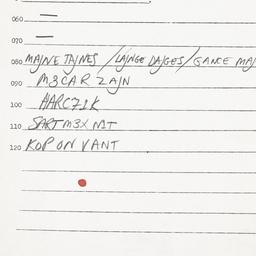 060 —
070 —
080 MAJNE TAJNES / LAJNGE DAJGES / GANCE MAJ
090 M3CAR ZAJN
100 HARCZIK
110 SART M3X NIT
120 KOP ON VANT